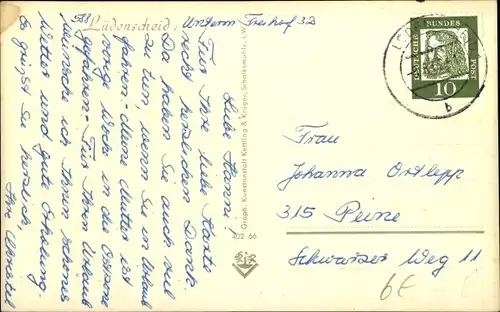 588 Lüdenscheid, Unterm Freihof 32
Liebe Hanni!
Für Ihre liebe Karte
recht herzlichen Dank.
Da haben Sie auch viel
zu tun, wenn Sie in Urlaub
fahren. Meine Mutter ist
vorige Woche in die Ostzone
gefahren. Für Ihren Urlaub
wünsche ich Ihnen schönes
Wetter und gute Erholung.
Es grüßt Sie herzlich,
Ihre
Graph. Kunstanstalt Kettling & Krüger, Schalksmühle, i.W.
402 66
K&K
DEUTSCHE BUNDES POST
10
b
Frau
Johanna Ortlepp
315 Peine
Schwarzer Weg 11
6€